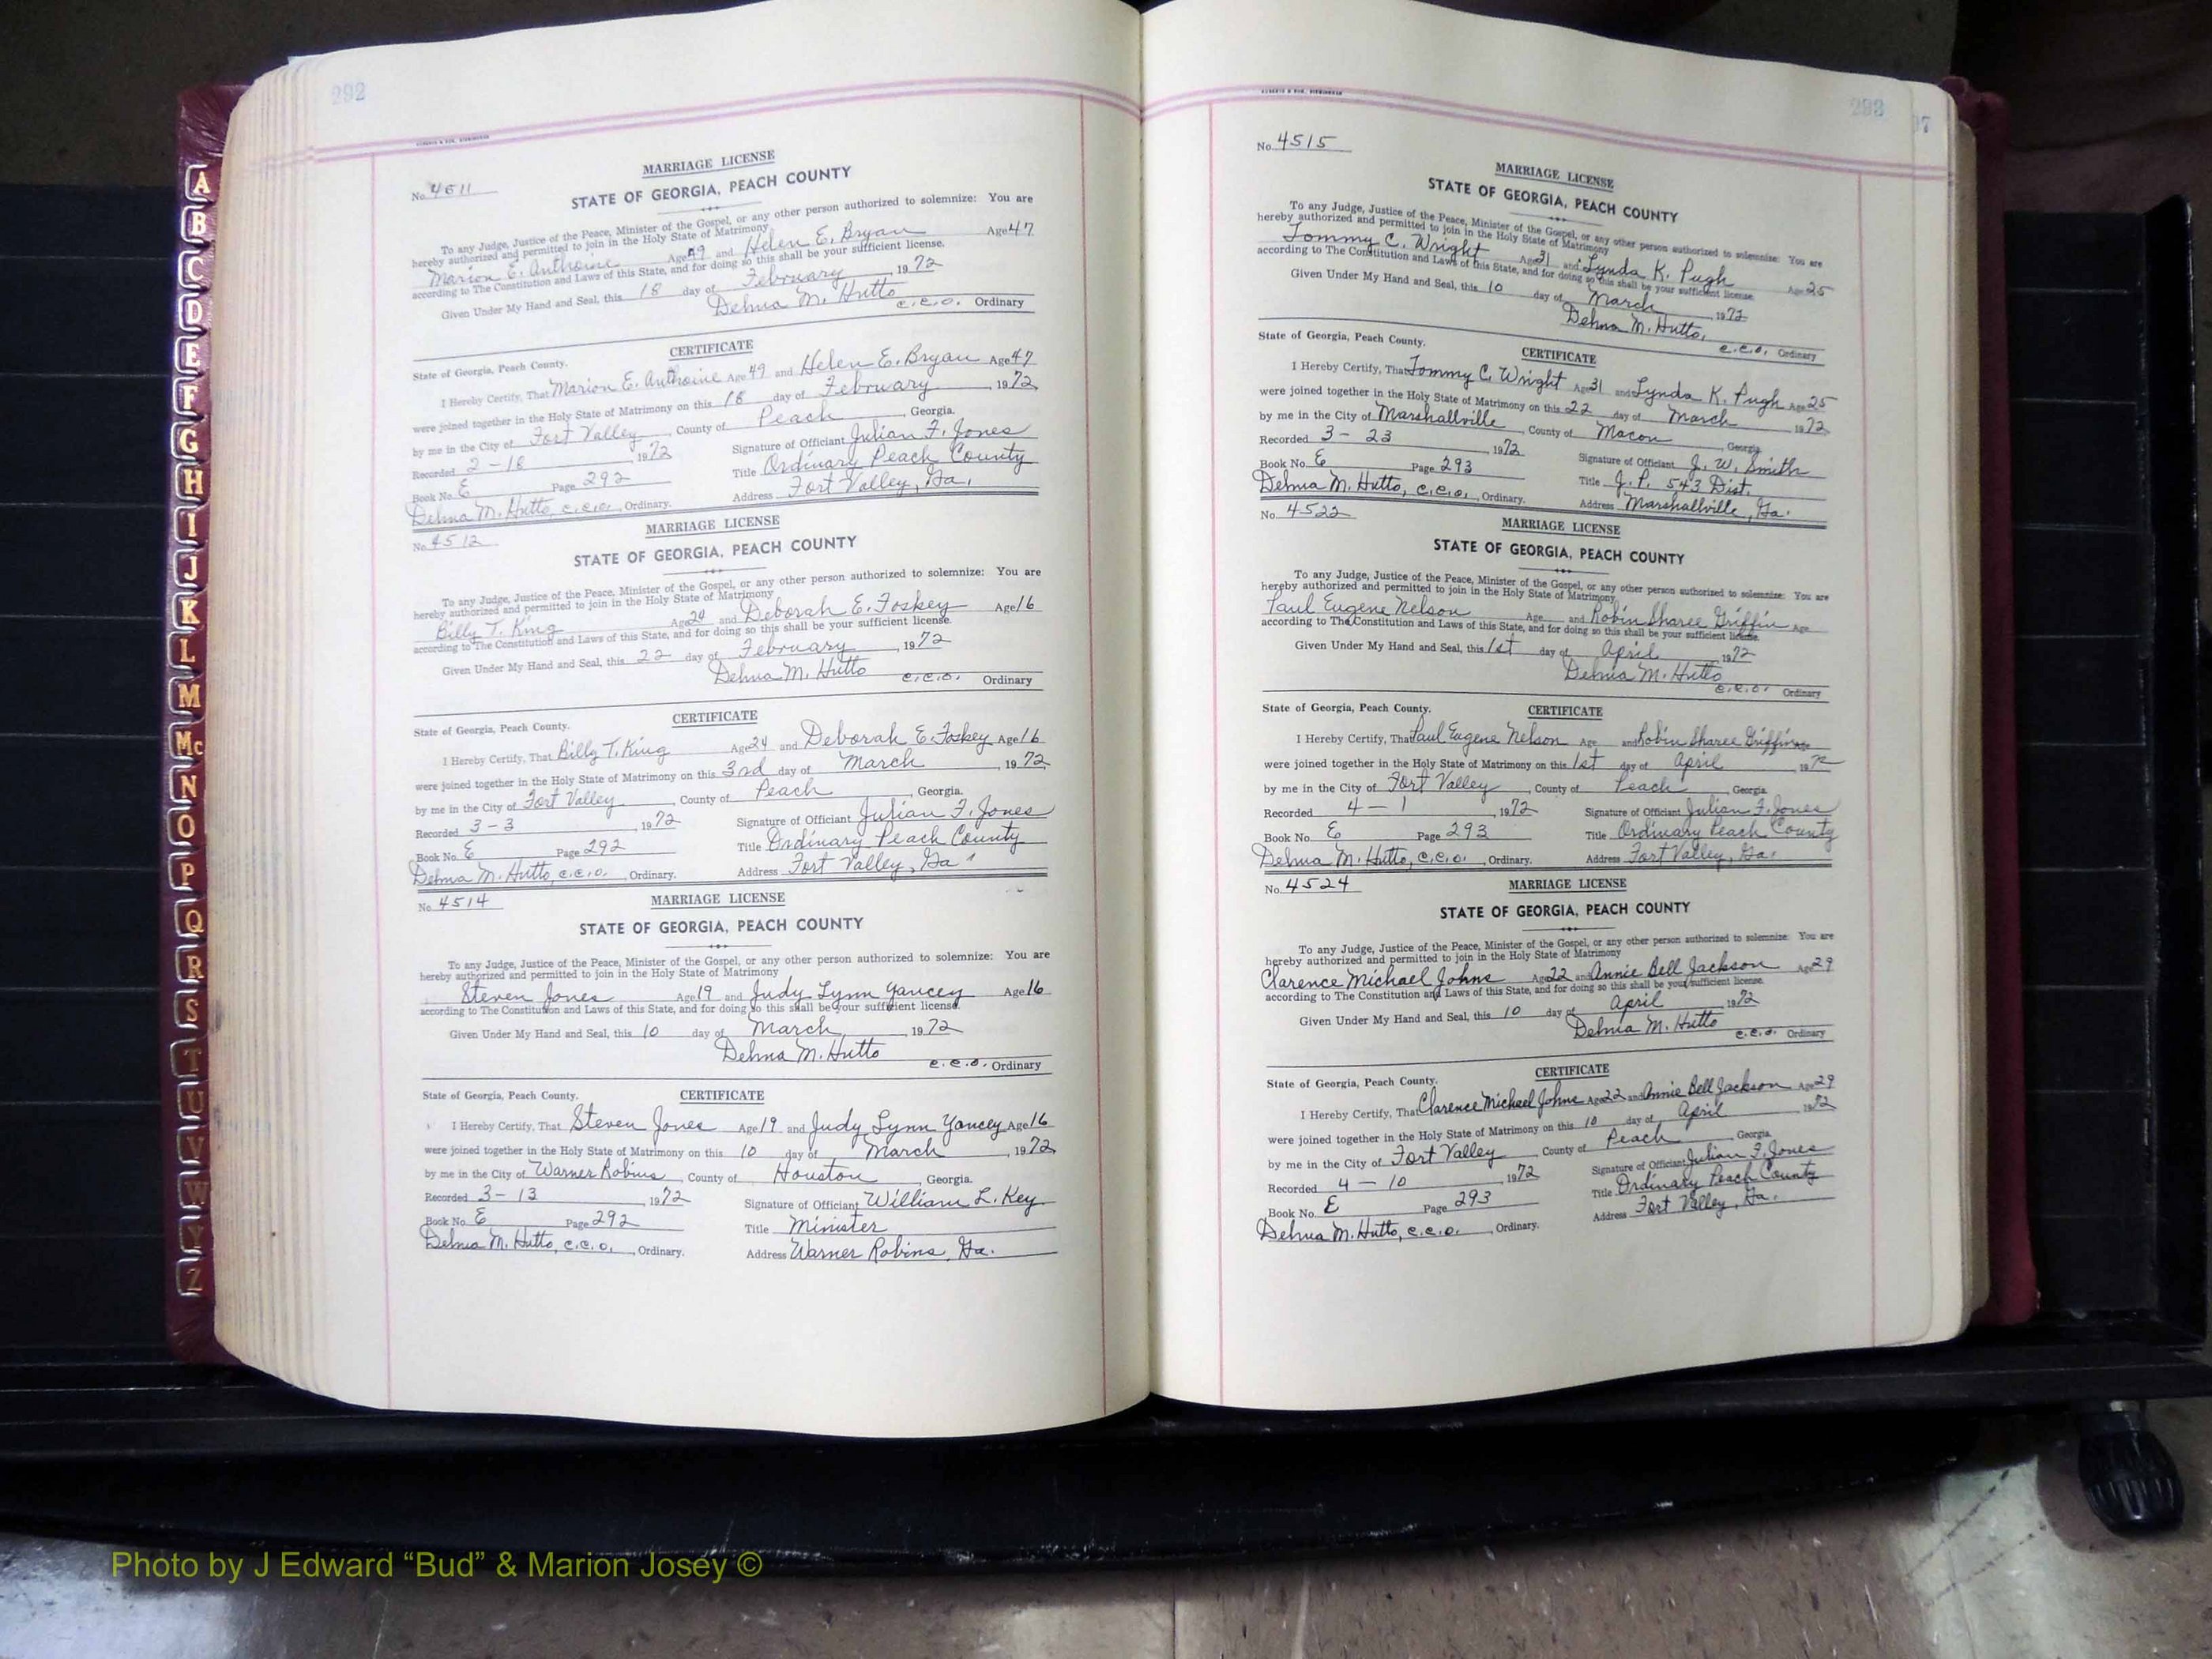 A
B
C
D
E
F
G
H
I
J
K
L
M
Mc
N
O
P
Q
R
S
T
U
V
W
Y
Z
292
No. 4511
MARRIAGE LICENSE
STATE OF GEORGIA, PEACH COUNTY
To any Judge, Justice of the Peace, Minister of the Gospel, or any other person authorized to solemnize: You are
hereby authorized and permitted to join in the Holy State of Matrimony
Marion E. Anthoine Age 49 and Helen E. Bryan Age 47
according to The Constitution and Laws of this State, and for doing so this shall be your sufficient license.
Given Under My Hand and Seal, this 18 day of February, 1972
Delma M. Hutto c.c.o. Ordinary
CERTIFICATE
State of Georgia, Peach County.
I Hereby Certify, That Marion E. Anthoine Age 49 and Helen E. Bryan Age 47
were joined together in the Holy State of Matrimony on this 18 day of February, 1972
by me in the City of Fort Valley, County of Peach, Georgia.
Recorded 2-18 1972 Signature of Officiant Julian F. Jones
Book No. E Page 292 Title Ordinary Peach County
Delma M. Hutto, c.c.o., Ordinary. Address Fort Valley, Ga.
No. 4512
MARRIAGE LICENSE
STATE OF GEORGIA, PEACH COUNTY
To any Judge, Justice of the Peace, Minister of the Gospel, or any other person authorized to solemnize: You are
hereby authorized and permitted to join in the Holy State of Matrimony
Billy T. King Age 24 and Deborah E. Foskey Age 16
according to The Constitution and Laws of this State, and for doing so this shall be your sufficient license.
Given Under My Hand and Seal, this 22 day of February, 1972
Delma M. Hutto c.c.o. Ordinary
CERTIFICATE
State of Georgia, Peach County.
I Hereby Certify, That Billy T. King Age 24 and Deborah E. Foskey Age 16
were joined together in the Holy State of Matrimony on this 3rd day of March, 1972
by me in the City of Fort Valley, County of Peach, Georgia.
Recorded 3-3, 1972 Signature of Officiant Julian F. Jones
Book No. E Page 292 Title Ordinary Peach County
Delma M. Hutto, c.c.o., Ordinary. Address Fort Valley, Ga.
No. 4514
MARRIAGE LICENSE
STATE OF GEORGIA, PEACH COUNTY
To any Judge, Justice of the Peace, Minister of the Gospel, or any other person authorized to solemnize: You are
hereby authorized and permitted to join in the Holy State of Matrimony
Steven Jones Age 19 and Judy Lynn Yancey Age 16
according to The Constitution and Laws of this State, and for doing so this shall be your sufficient license.
Given Under My Hand and Seal, this 10 day of March, 1972
Delma M. Hutto
c.c.o. Ordinary
State of Georgia, Peach County. CERTIFICATE
I Hereby Certify, That Steven Jones Age 19 and Judy Lynn Yancey Age 16
were joined together in the Holy State of Matrimony on this 10 day of March, 1972
by me in the City of Warner Robins, County of Houston, Georgia.
Recorded 3-13, 1972 Signature of Officiant William L. Key
Book No. E Page 292 Title Minister
Delma M. Hutto, c.c.o., Ordinary. Address Warner Robins, Ga.
293
97
No. 4515
MARRIAGE LICENSE
STATE OF GEORGIA, PEACH COUNTY
To any Judge, Justice of the Peace, Minister of the Gospel, or any other person authorized to solemnize: You are
hereby authorized and permitted to join in the Holy State of Matrimony
Tommy C. Wright Age 31 and Lynda K. Pugh Age 25
according to The Constitution and Laws of this State, and for doing so this shall be your sufficient license.
Given Under My Hand and Seal, this 10 day of March, 1972
Delma M. Hutto,
c.c.o. Ordinary
State of Georgia, Peach County.
CERTIFICATE
I Hereby Certify, That Tommy C. Wright Age 31 and Lynda K. Pugh Age 25
were joined together in the Holy State of Matrimony on this 22 day of March 1972
by me in the City of Marshallville, County of Macon, Georgia
Recorded 3-23, 1972 Signature of Officiant J. W. Smith
Book No. E Page 293 Title J. P. 543 Dist.
Delma M. Hutto, c.c.o., Ordinary. Address Marshallville, Ga.
No. 4522
MARRIAGE LICENSE
STATE OF GEORGIA, PEACH COUNTY
To any Judge, Justice of the Peace, Minister of the Gospel, or any other person authorized to solemnize: You are
hereby authorized and permitted to join in the Holy State of Matrimony
Paul Eugene Nelson Age and Robin Sharee Griffin Age
according to The Constitution and Laws of this State, and for doing so this shall be your sufficient license.
Given Under My Hand and Seal, this 1st day of April, 1972
Delma M. Hutto
c.c.o. Ordinary
State of Georgia, Peach County. CERTIFICATE
I Hereby Certify, That Paul Eugene Nelson Age and Robin Sharee Griffin Age
were joined together in the Holy State of Matrimony on this 1st day of April 1972
by me in the City of Fort Valley, County of Peach Georgia
Recorded 4-1, 1972 Signature of Officiant Julian F. Jones
Book No. E Page 293 Title Ordinary Peach County
Delma M. Hutto, c.c.o., Ordinary. Address Fort Valley, Ga.
No. 4524
MARRIAGE LICENSE
STATE OF GEORGIA, PEACH COUNTY
To any Judge, Justice of the Peace, Minister of the Gospel, or any other person authorized to solemnize: You are
hereby authorized and permitted to join in the Holy State of Matrimony
Clarence Michael Johns Age 22 and Annie Bell Jackson Age 29
according to The Constitution and Laws of this State, and for doing so this shall be your sufficient license.
Given Under My Hand and Seal, this 10 day of April, 1972
Delma M. Hutto
c.c.o. Ordinary
CERTIFICATE
State of Georgia, Peach County.
I Hereby Certify, That Clarence Michael Johns Age 22 and Annie Bell Jackson Age 29
were joined together in the Holy State of Matrimony on this 10 day of April 1972
by me in the City of Fort Valley, County of Peach, Georgia
Recorded 4-10, 1972 Signature of Officiant Julian F. Jones
Book No. E Page 293 Title Ordinary Peach County
Delma M. Hutto, c.c.o., Ordinary. Address Fort Valley, Ga.
Photo by J Edward “Bud” & Marion Josey ©